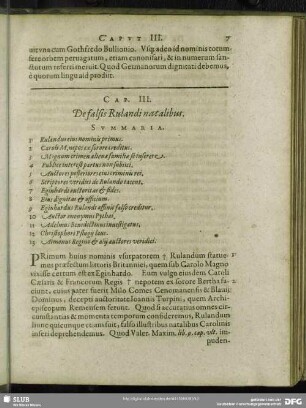 CAPVT III. 7
vitvna cum Gothfredo Bullionio. Vsq; adeo id nominis totum
fere orbem peruagatum, etiam canonisari, & in numerum san-
ctorum referri meruit. Quod Germanorum dignitati debemus,
è quorum lingua id prodiit.
CAP. III.
De falsis Rulandi natalibus.
SVMMARIA.
1 Rulandus eius nominis primus.
2 Caroli M. nepos ex sorore creditus.
3 Magnum crimen alienæ familiæ se inserere.
4 Publicè interest partus non subiici.
5 Auctores posteriores eius criminis rei.
6 Scriptores veridici de Rulando tacent.
7 Eginhardi auctoritas & fides.
8 Eius dignitas & officium.
9 Eginhardus Rulandi affinis falsò creditur.
10 Auctor anonymus Pithœi,
11 Adelmus benedictinus
12 Christophori Pflugij laus.
13 Aimonus Regino & alij auctores veridici.
PRimum huius nominis vsurpatorem † Rulandum statui-
mus præfectum litoris Britannici, quem sub Carolo Magno
vixisse certum est ex Eginhardo. Eum vulgo eiusdem Caroli
Cæsaris & Francorum Regis † nepotem ex sorore Bertha fa-
ciunt, cuius pater fuerit Milo Comes Cenomanensis & Blauij
Dominus, decepti auctoritate Ioannis Turpini, quem Archi-
episcopum Remensem ferunt. Quod si accuratius omnes cir-
cumstantias & momenta temporum consideremus, Rulandum
hunc quicunque etiam fuit, falso illustribus natalibus Carolinis
inseri deprehendemus. Quod Valer. Maxim. lib. 9. cap. vlt. im-
puden-
SLUB
DFG